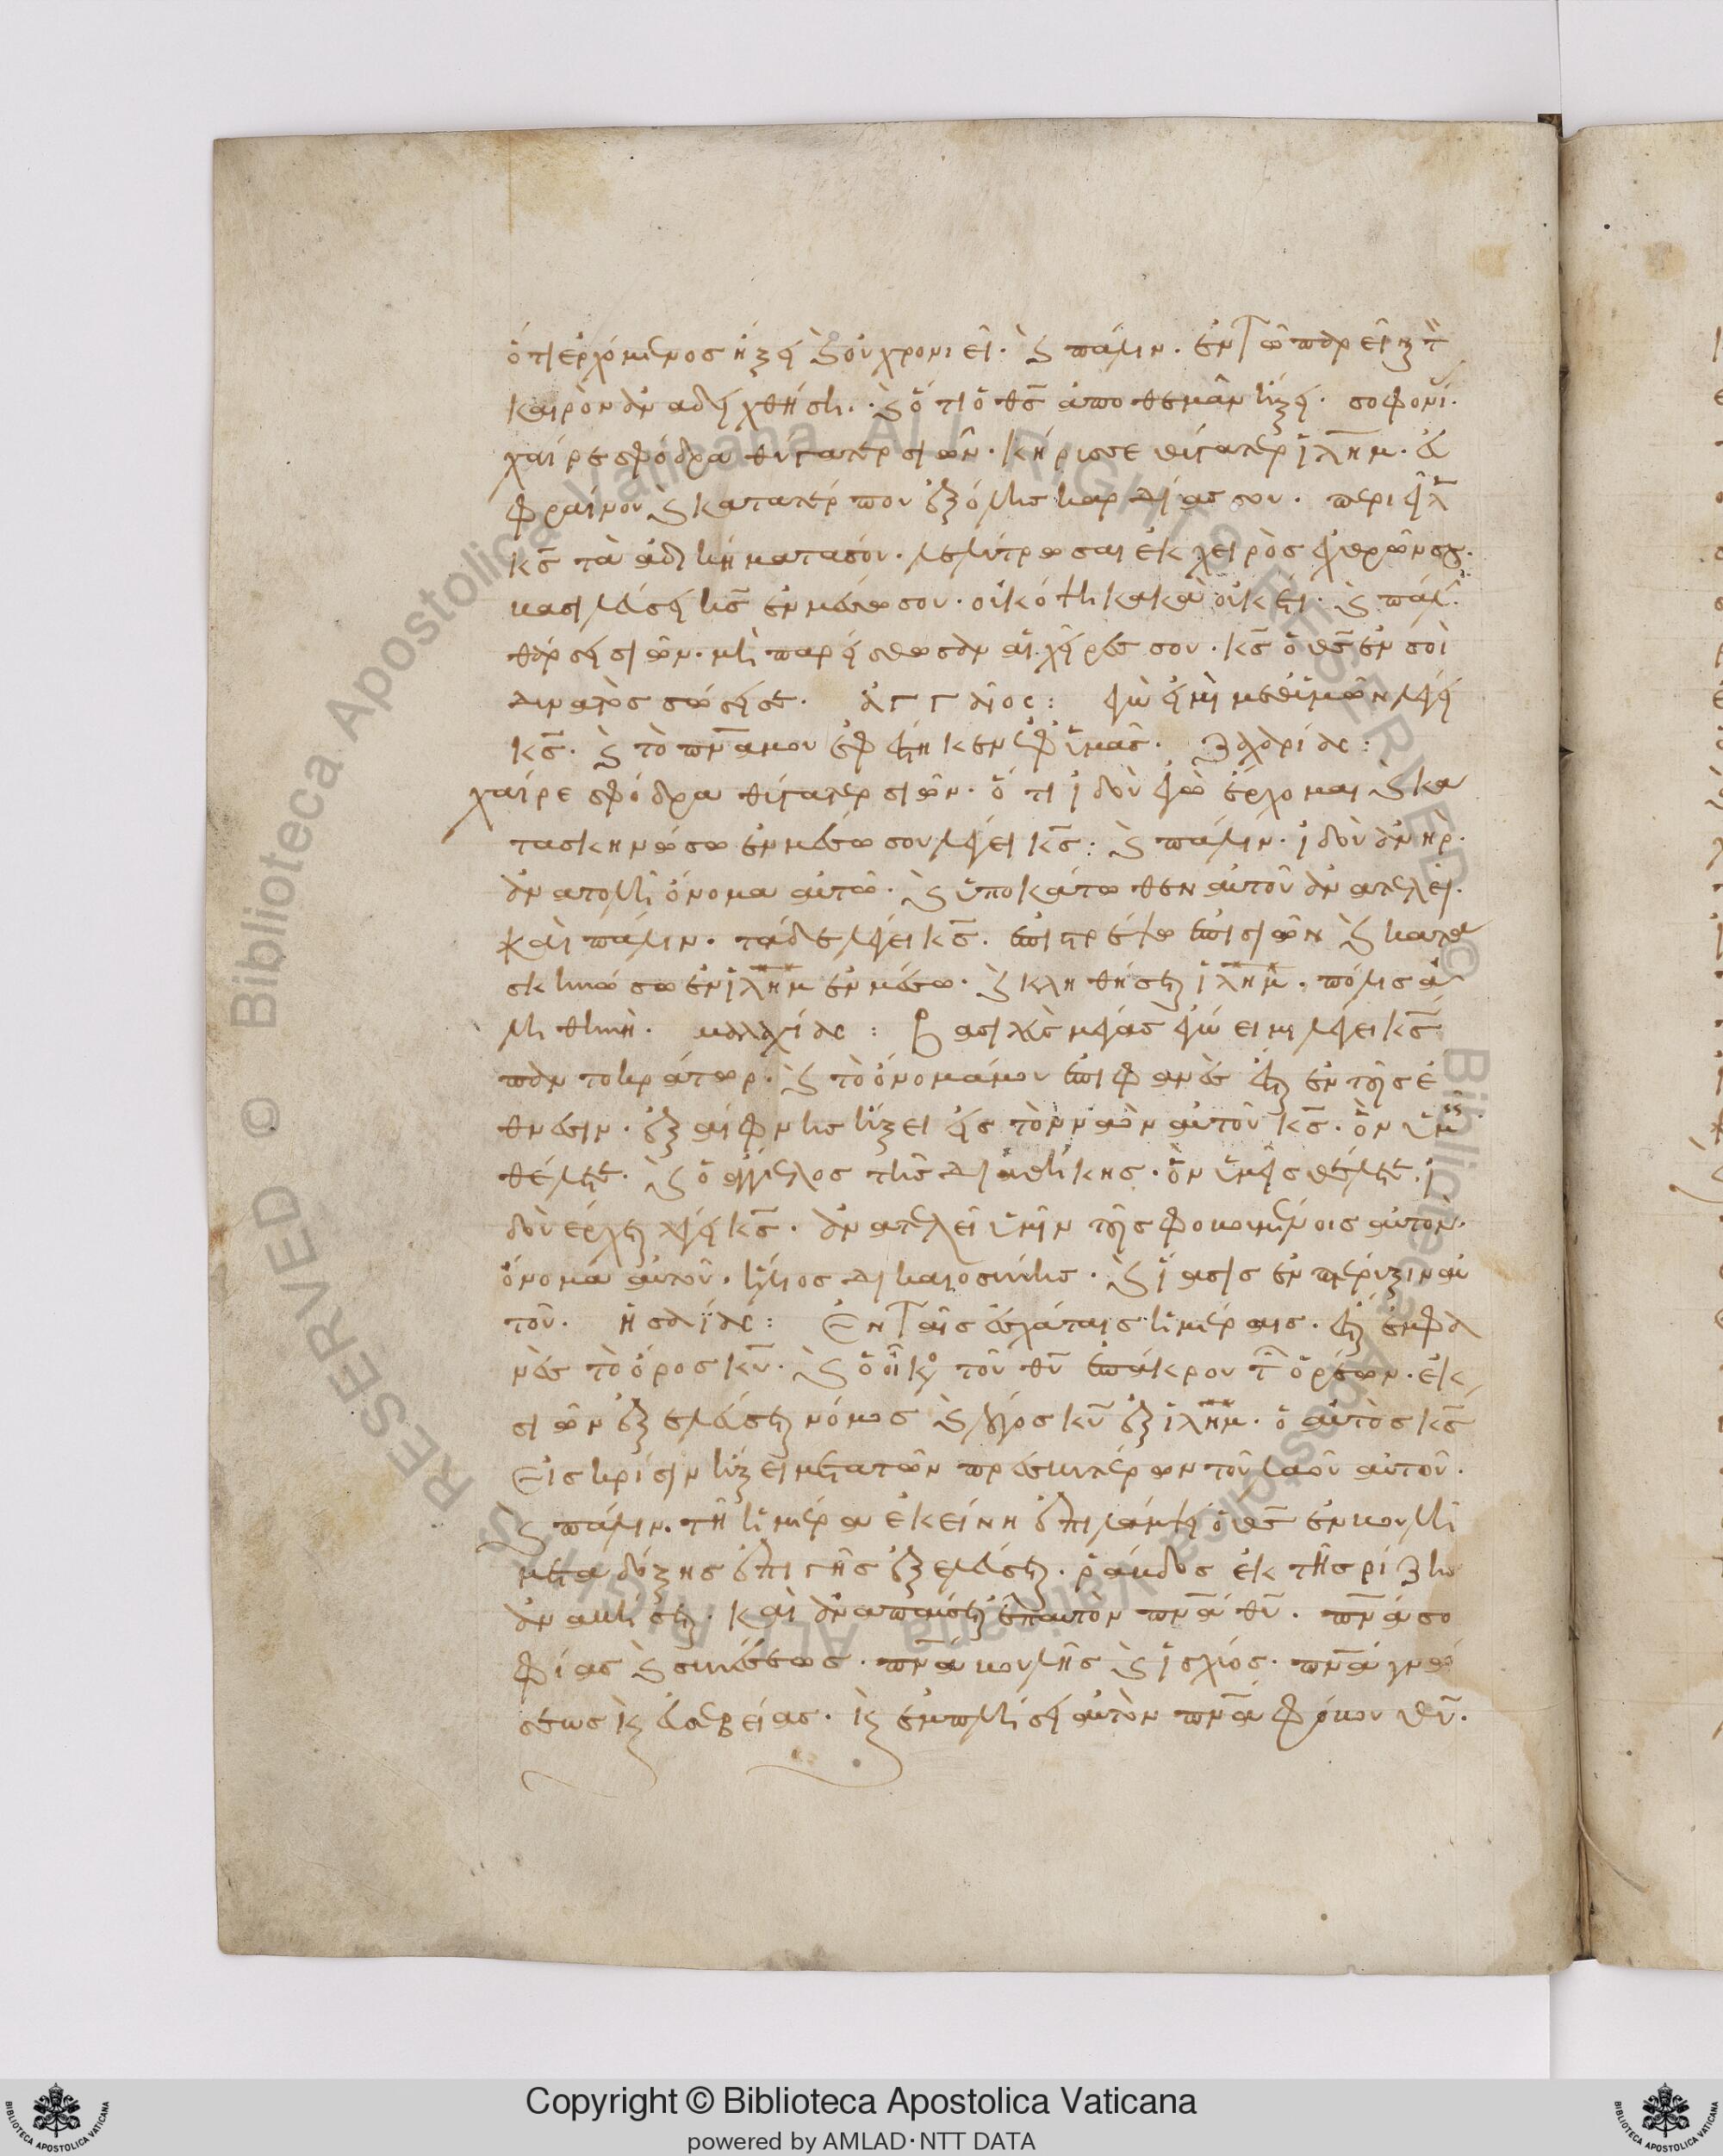 ὅτι ἐρχόμενος ἥξει καὶ οὐ χρονιεῖ. καὶ πάλιν. ἐν τῶ παρεῖναι τ
καιρὸν ἀναδειχθήση. καὶ ὅτι ὁ θς ἀπὸ θεμὰν ἥξει. σοφονί.
χαίρε σφόδρα θύγατερ σιών. κήρυσσε θύγατερ ἱλημ. εὐ
φραίνου καὶ κατατέρπου ἐξ ὅλης καρδίας σου. περιεῖλε
κς τὰ ἀδικήματά σου. λελύτρωσαι ἐκ χειρὸς ἐχθρῶν σου.
βασιλεύσει κς ἐν μέσω σου. οὐκ ὄψη κακὰ οὐκέτι. καὶ πάλ.
θάρσει σιών. μὴ παρείσθωσαν αἱ χεῖρές σου. κς ὁ θς ἐν σοὶ
δυνατὸς σώσει σε. ἀγγαῖος: ἐγώ εἰμι μεθ' ὑμῶν λέγει
κς. καὶ τὸ πνα μου ἐφέστηκεν ἐφ' ὑμᾶς. ζαχαρίας:
χαίρε σφόδρα θύγατερ σιών. ὅτι ἰδοὺ ἐγὼ ἔρχομαι καὶ κα
τασκηνώσω ἐν μέσω σου λέγει κς: καὶ πάλιν. ἰδοὺ ἀνήρ.
ἀνατολὴ ὄνομα αὐτῶ. καὶ ὑποκάτωθεν αὐτοῦ ἀνατελεῖ.
καὶ πάλιν. τάδε λέγει κς. ἐπιστρέψω ἐπὶ σιὼν καὶ κατα
σκηνώσω ἐν ἱλημ ἐν μέσω. καὶ κληθήσεται ἱλημ. πόλις ἀ
ληθινή. μαλαχίας: βασιλεὺς μέγας ἐγώ εἰμι λέγει κς
παντοκράτωρ. καὶ τὸ ὄνομά μου ἐπιφανὲς ἔσται ἐν τοῖς ἔ
θνεσιν. ἐξαίφνης ἥξει εἰς τὸν ναὸν αὐτοῦ κς. ὃν ὑμεῖς
θέλετε. καὶ ὁ ἄγγελος τῆς διαθήκης. ὃν ὑμεῖς θέλετε. ἰ
δοὺ ἔρχεται λέγει κς. ἀνατελεῖ ὑμῖν τοῖς φοβουμένοις αὐτὸν.
ὄνομα αὐτοῦ. ἥλιος δικαιοσύνης. καὶ ἴασις ἐν πτέρυξιν αὐ
τοῦ. ἡσαΐας: Ἐν ταῖς ἐσχάταις ἡμέραις. ἔσται ἐμφα
νὲς τὸ ὄρος κυ. καὶ ὁ οἶκος τοῦ θυ ἐπ' ἄκρου τῶν ὀρέων. ἐκ
σιὼν ἐξελεύσεται νόμος καὶ λόγος κυ ἐξ ἱλημ. ὁ αὐτὸς κς
εἰς κρίσιν ἥξει μετὰ τῶν πρεσβυτέρων τοῦ λαοῦ αὐτοῦ.
καὶ πάλιν. τῆ ἡμέρα ἐκείνη ἐπιλάμψει ὁ θς ἐν βουλῆ
μετὰ δόξης ἐπὶ γῆς ἐξελεύσεται. ῥάβδος ἐκ τῆς ρίζης
ἀναβήσεται. καὶ ἀναπαύσεται ἐπ' αὐτὸν πνα θυ. πνα σο
φίας καὶ συνέσεως. πνα βουλῆς καὶ ἰσχύος. πνα γνώ
σεως καὶ εὐσεβείας. καὶ ἐμπλήσει αὐτὸν πνα φόβου θυ.
Copyright © Biblioteca Apostolica Vaticana
powered by AMLAD·NTT DATA